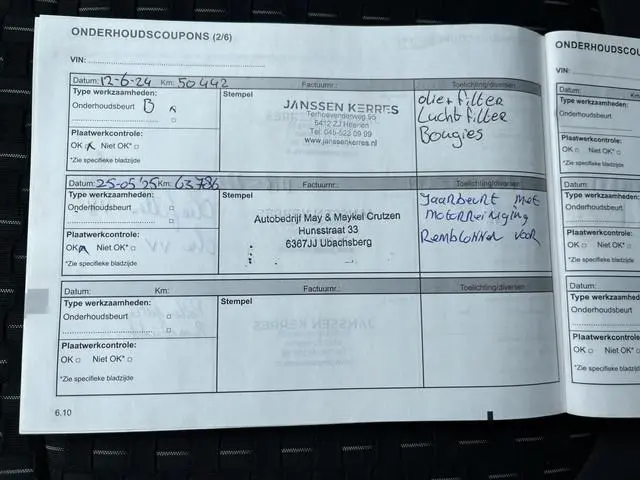 ONDERHOUDSCOUPONS (2/6)
VIN:
Datum: 12-6-24 Km: 50442 Factuurnr.: Toelichting/diversen
Type werkzaamheden:
Onderhoudsbeurt B
Plaatwerkcontrole:
OK Niet OK*
*Zie specifieke bladzijde
Stempel
JANSSEN KERRES
Terhoevenderweg 95
6412 ZJ Heerlen
Tel. 045-522 09 99
www.janssenkerres.nl
olie+filter
Luchtfilter
Bougies
Datum: 25-05'25 Km: 63786 Factuurnr.: Toelichting/diversen
Type werkzaamheden:
Onderhoudsbeurt
Plaatwerkcontrole:
OK Niet OK*
*Zie specifieke bladzijde
Stempel
Autobedrijf May & Maykel Crutzen
Hunsstraat 33
6367JJ Ubachsberg
Jaarbeurt met
motorreiniging
Remblokken voor
Datum: Km: Factuurnr.: Toelichting/diversen
Type werkzaamheden:
Onderhoudsbeurt
Plaatwerkcontrole:
OK Niet OK*
*Zie specifieke bladzijde
Stempel
6.10
ONDERHOUDSCOU
VIN:
Datum: Km:
Type werkzaamheden:
Onderhoudsbeurt
Plaatwerkcontrole:
OK Niet OK*
*Zie specifieke bladzijde
Datum:
Type werkzaamheden:
Onderhoudsbeurt
Plaatwerkcontrole:
OK Niet OK*
*Zie specifieke bladzijde
Datum:
Type werkzaamheden:
Onderhoudsbeurt
Plaatwerkcontrole:
OK Niet OK*
*Zie specifieke bladzijde